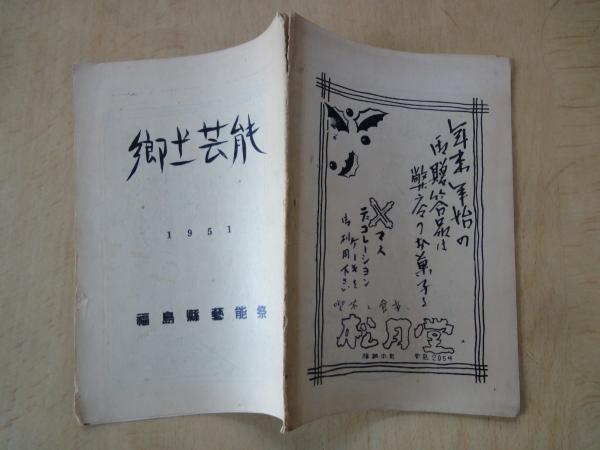 郷土芸能
1951
福島縣藝能祭
年末年始の
御贈答品は
弊店のお菓子を
Xマス
デコレーション
ケーキを
御利用下さい
喫茶と食事
松月堂
電話 2054